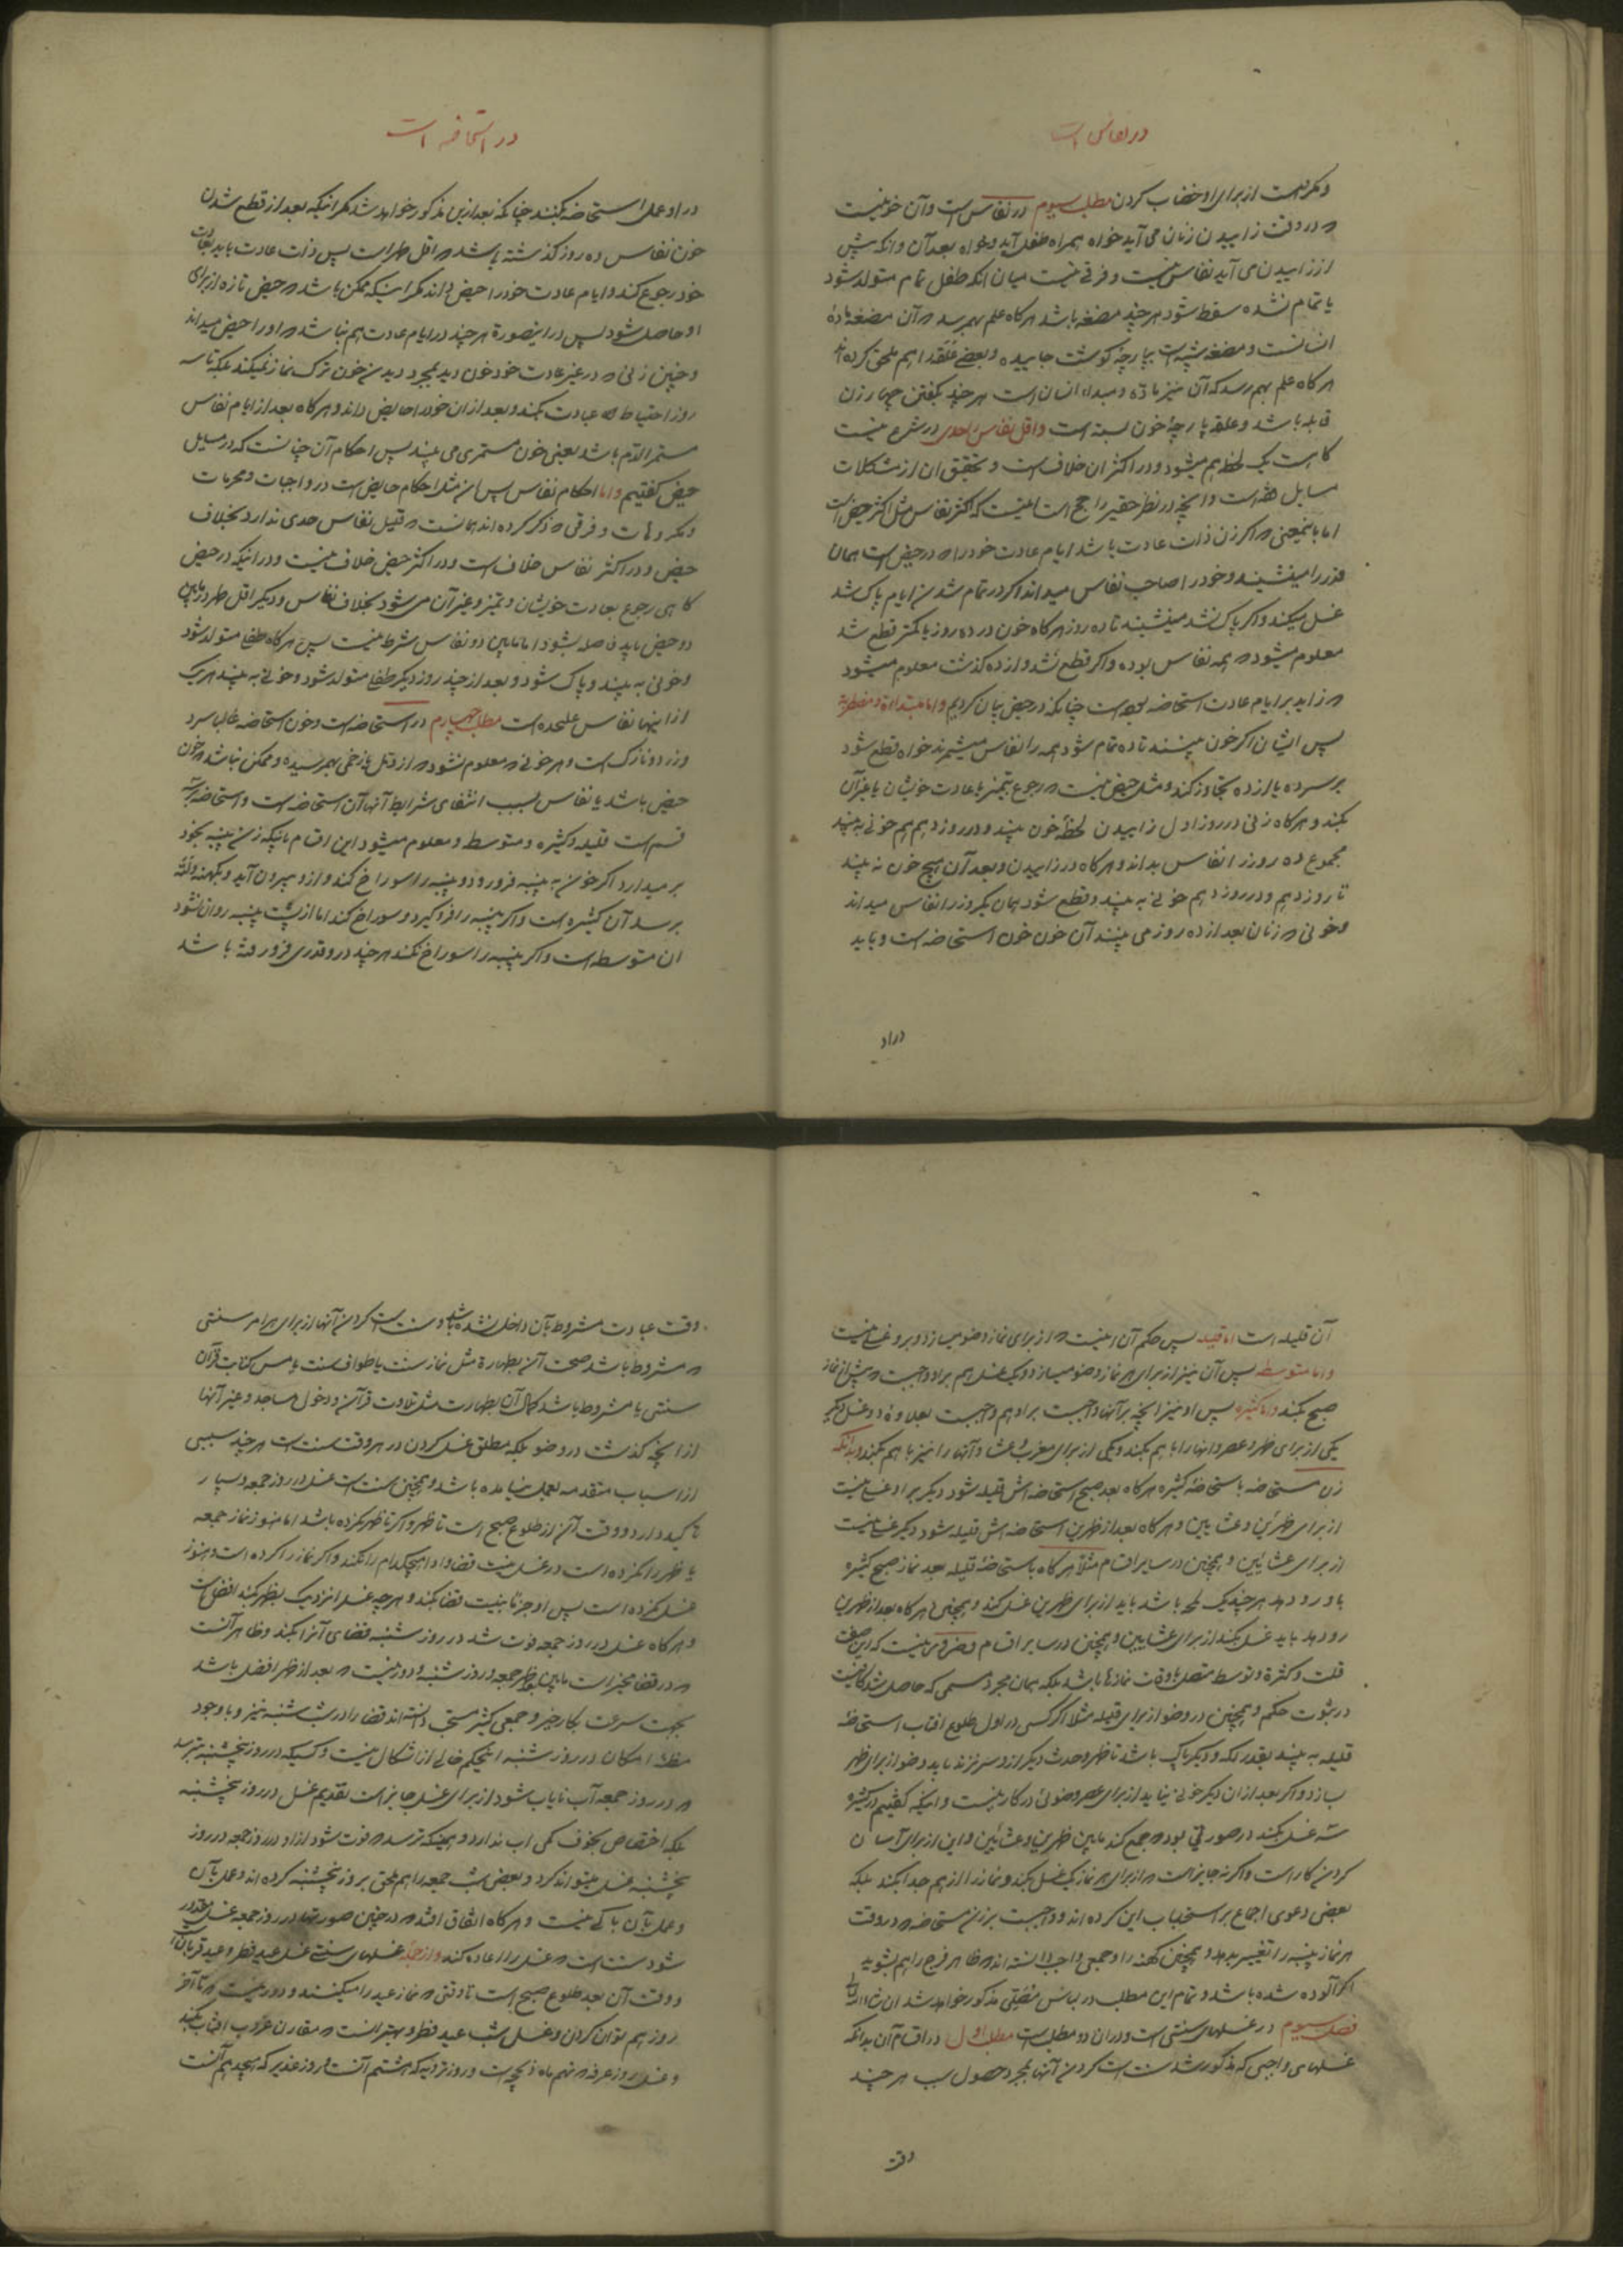 در نفاس است
و مکروهست از برای او خضاب کردن مطلب سیوم در نفاس است و آن خونیست
که در وقت زاییدن زنان می آید خواه همراه طفل آید و خواه بعد آن و انکه پیش
از زاییدن می آید نفاس نیست و فرقی نیست میان انکه طفل تمام متولد شود
یا تمام نشده سقط شود هر چند مضغه باشد هرکاه علم بهم رسد که آن مضغه مادهٔ
انسانست و مضغه شبیه است بپارچه کوشت جاییده و بعضی علقه را هم ملحق کرده اند
هرکاه علم بهم رسد که آن نیز ماده و مبداء انسان است هر چند بکفتن چهار زن
قابله باشد و علقه پارچهٔ خون بسته است و اقل نفاس را حدی در شرع نیست
کاهست یک لحظه هم میشود و در اکثر ان خلاف است و تحقیق ان از مشکلات
مسایل فقه است و انچه در نظر حقیر راجح است اینست که اکثر نفاس مثل اکثر حیض است
اما باینمعنی که اکر زن ذات عادت باشد ایام عادت خود را که در حیض است همان
قدر را مینشیند و خود را صاحب نفاس میداند اکر در تمام شدن ایام پاک شد
غسل میکند و اکر پاک نشد مینشیند تا ده روز هرکاه خون در ده روز یا کمتر قطع شد
معلوم میشود که همه نفاس بوده و اکر قطع نشد و از ده کذشت معلوم میشود
که زاید بر ایام عادت استحاضه بوده است چنانکه در حیض بیان کردیم و اما مبتداءة و مضطربه
پس ایشان اکر خون میبینند تا ده تمام شود همه را نفاس میشمرند خواه قطع شود
بر سر ده یا از ده تجاوز کند و مثل حیض نیست که رجوع بتمیز یا عادت خویشان یا غیر آن
بکنند و هرکاه زنی در روز اول زاییدن لحظهٔ خون بیند و در روز دهم هم خونی به بیند
مجموع ده روز را نفاس بداند و هرکاه در زاییدن و بعد آن هیچ خون نه بیند
تا روز دهم و در روز دهم خونی به بیند و قطع شود همان یکروز را نفاس میداند
و خونی که زنان بعد از ده روز می بینند آن خون خون استحاضه است و باید
در او
در استحاضه است
در او عمل استحاضه بکنند چنانکه بعد ازین مذکور خواهد شد مکر اینکه بعد از قطع شدن
خون نفاس ده روز کذشته باشد که اقل طهر است پس ذات عادت باید بعادت
خود رجوع کند و ایام عادت خود را حیض داند مکر اینکه ممکن باشد که حیض تازه از برای
او حاصل شود پس در اینصورة هر چند در ایام عادت هم نباشد که او را حیض میداند
و چنین زنی که در غیر عادت خود خون دید بمجرد دیدن خون ترک نماز نمیکند بلکه تا سه
روز احتیاطا عبادت بکند و بعد از ان خود را حایض داند و هرکاه بعد از ایام نفاس
مستمر الدم باشد یعنی خون مستمری می بیند پس احکام آن چنانست که در مسایل
حیض کفتیم و اما احکام نفاس پس ان مثل احکام حایض است در واجبات و محرمات
و مکروهات و فرقی که ذکر کرده اند همانست که قلیل نفاس حدی ندارد بخلاف
حیض و در اکثر نفاس خلاف است و در اکثر حیض خلاف نیست و در اینکه در حیض
کاهی رجوع بعادت خویشان و تمیز و غیر آن می شود بخلاف نفاس و دیکر اقل طهر در مابین
دو حیض باید فاصله بشود اما مابین دو نفاس شرط نیست پس هرکاه طفل متولد شود
و خونی به بیند و پاک شود و بعد از چند روز دیکر طفل متولد شود و خونی به بیند هر یک
از اینها نفاس علیحده است مطلب چهارم در استحاضه است و خون استحاضه غالبا سرد
و زرد و نازک است و هر خونی که معلوم نشود که از دمل یا زخمی بهم رسیده و ممکن نباشد که خون
حیض باشد یا نفاس بسبب انتفای شرایط آنها آن استحاضه است و استحاضه بر سه
قسم است قلیله و کثیره و متوسطه و معلوم میشود این اقسام باینکه زن پنبه بخود
بر میدارد اکر خون به پنبه فرو رود و پنبه را سوراخ کند و از و بیرون آید و بکهنه و لته
برسد آن کثیره است و اکر پنبه را فرو کیرد و سوراخ کند اما از پشت پنبه روان نشود
ان متوسطه است و اکر پنبه را سوراخ نکند هر چند در و قدری فرو رفته باشد
آن قلیله است اما قلیله پس حکم آن اینست که از برای نماز وضو میسازد و برو غسلی نیست
و اما متوسطه پس آن نیز از برای هر نماز وضو میسازد و یک غسل هم بر او واجبست که پیش از نماز
صبح بکند و اما کثیره پس او نیز انچه بر آنها واجبست بر او هم واجبست بعلاوهٔ دو غسل دیکر
یکی از برای ظهر و عصر و انها را با هم بکند و یکی از برای مغرب و عشا و آنها را نیز با هم بکند و بدانکه
زن مستحاضه باستحاضهٔ کثیره هرکاه بعد صبح استحاضه اش قلیله شود دیکر بر او غسلی نیست
از برای ظهرین و عشایین و هرکاه بعد از ظهرین استحاضه اش قلیله شود دیکر غسلی نیست
از برای عشایین و همچنین در سایر اقسام مثلا هرکاه باستحاضهٔ قلیله بعد نماز صبح کثیره
باو رو دهد هر چند یک لمحه باشد باید از برای ظهرین غسل کند و همچنین هرکاه بعد از ظهرین
رو دهد باید غسل بکند از برای عشایین و همچنین در سایر اقسام و ضرور نیست که این صفت
قلت و کثرة و توسط متصل باوقات نمازها باشد بلکه همان مجرد مسمی که حاصل شد کافیست
در ثبوت حکم و همچنین در وضو از برای قلیله مثلا اکر کسی در اول طلوع افتاب استحاضهٔ
قلیله به بیند بقدر لکه و دیکر پاک باشد تا ظهر و حدث دیکر از و سر نزند باید وضو از برای ظهر
بسازد و اکر بعد از ان دیکر خونی نیاید از برای عصر وضوئی در کار نیست و اینکه کفتیم در کثیره
سه غسل بکند در صورتی بود که جمع کند مابین ظهرین و عشائین و این از برای آسان
کردن کار است و اکر نه جایز است که از برای هر نماز یک غسل بکند و نماز را از هم جدا بکند بلکه
بعضی دعوی اجماع بر استحباب این کرده اند و واجبست بر زن مستحاضه که در وقت
هر نماز پنبه را تغییر بدهد و همچنین کهنه را و جمعی واجب دانسته اند که ظاهر فرج را هم بشوید
اکر آلوده شده باشد و تمام این مطلب در لباس مصلی مذکور خواهد شد ان شاء الله تعالی
فصل سیوم در غسلهای سنتی است و در ان دو مطلب است مطلب اول در اقسام آن بدانکه
غسلهای واجبی که مذکور شد سنت است کردن آنها بمجرد حصول سبب هر چند
وقت
وقت عبادت مشروط بآن داخل نشده باشد و سنت است کردن آنها از برای هر امر سنتی
که مشروط باشد صحت آن بطهارة مثل نماز سنت یا طواف سنت یا مس کتابت قرآن
سنتی یا مشروط باشد کمال آن بطهارت مثل تلاوت قرآن و دخول مساجد و غیر آنها
از انچه کذشت در وضو بلکه مطلق غسل کردن در هر وقت سنت است هر چند سببی
از اسباب متقدمه بعمل نیامده باشد و همچنین سنت است غسل در روز جمعه و بسیار
تاکید دارد و وقت آن از طلوع صبح است تا ظهر و اکر تا ظهر نکرده باشد اما هنوز نماز جمعه
یا ظهر را نکرده است در غسل نیت قضا و ادا هیچکدام را نکند و اکر نماز را کرده است و هنوز
غسل نکرده است پس او جزما بنیت قضا بکند و هر چه غسل را نزدیک بظهر بکند افضل است
و هرکاه غسل در روز جمعه فوت شد در روز شنبه قضای آنرا بکند و ظاهر آنست
که در قضا مخیر است مابین بعد ظهر جمعه و روز شنبه و دور نیست که بعد از ظهر افضل باشد
بجهت سرعت بکار خیر و جمعی کثیر مستحب دانسته اند قضا را در شب شنبه نیز و با وجود
مظنهٔ امکان در روز شنبه اینحکم خالی از اشکال نیست و کسیکه در روز پنجشنبه بترسد
که در روز جمعه آب نایاب شود از برای غسل جایز است تقدیم غسل در روز پنجشنبه
بلکه اختصاص بخوف کمی اب ندارد و همینکه ترسد که فوت شود از او در روز جمعه در روز
پنجشنبه غسل میتواند کرد و بعضی شب جمعه را هم ملحق بروز پنجشنبه کرده اند و عمل بآن
و عمل بآن باکی نیست و هرکاه اتفاق افتد که در چنین صورتها در روز جمعه غسل مقدور
شود سنت است که غسل را اعاده کند و از جمله غسلهای سنتی غسل عید فطر و عید قربان است
و وقت آن بعد طلوع صبح است تا وقتی که نماز عید را میکنند و دور نیست که تا آخر
روز هم توان کردن و غسل شب عید فطر و بهتر انست که مقارن غروب افتاب بکند
و غسل روز عرفه که نهم ماه ذیحجه است و روز ترویه که هشتم آنست و روز غدیر که هیجدهم آنست